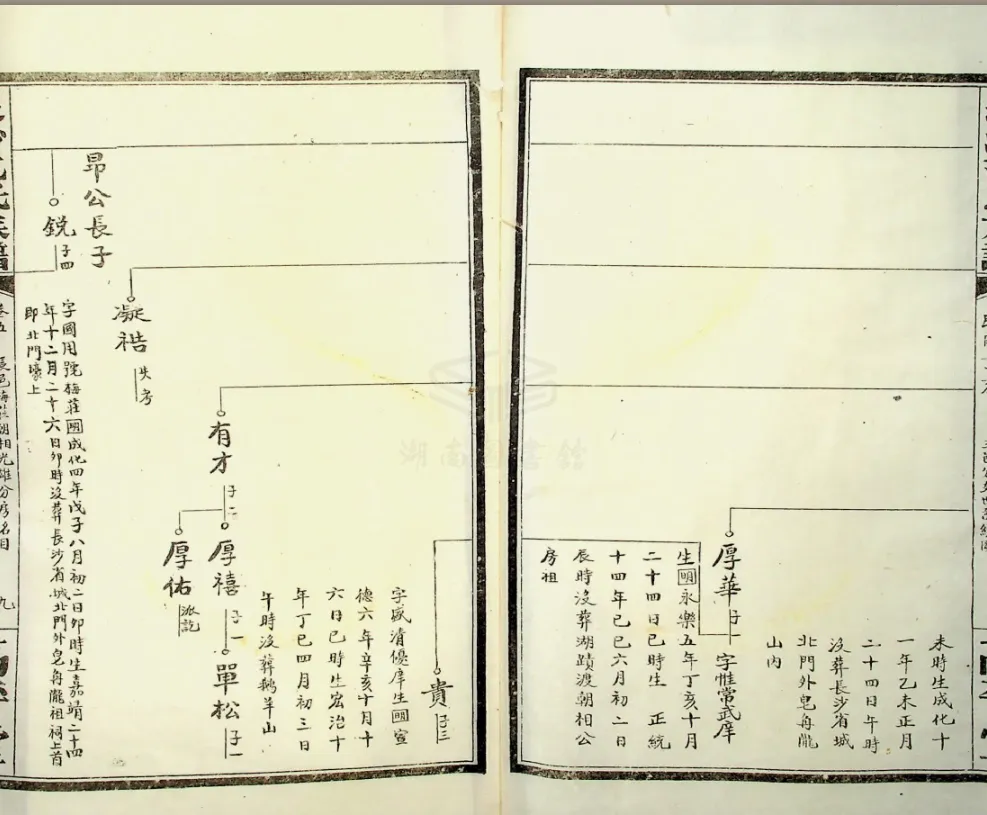 未時生成化十
一年乙未正月
二十四日午時
没葬長沙省城
北門外皂角隴
山内
厚華
子一
字惟常武庠
生明永樂五年丁亥十月
二十四日巳時生 正統
十四年己巳六月初二日
辰時没葬湖蹟渡朝相公
房祖
貴
子三
字盛清優庠生明宣
德六年辛亥十月十
六日巳時生宏治十
年丁巳四月初三日
午時没葬鵝羊山
有才
子二
厚禧
子一
單松
子一
厚佑
派說
凝祰
失考
昂公長子
銳
子四
字國用號梅莊明成化四年戊子八月初二日卯時生嘉靖二十四
年十二月二十六日卯時没葬長沙省城北門外皂角隴祖祠上首
即北門壕上
卷五
九
湖南圖書館